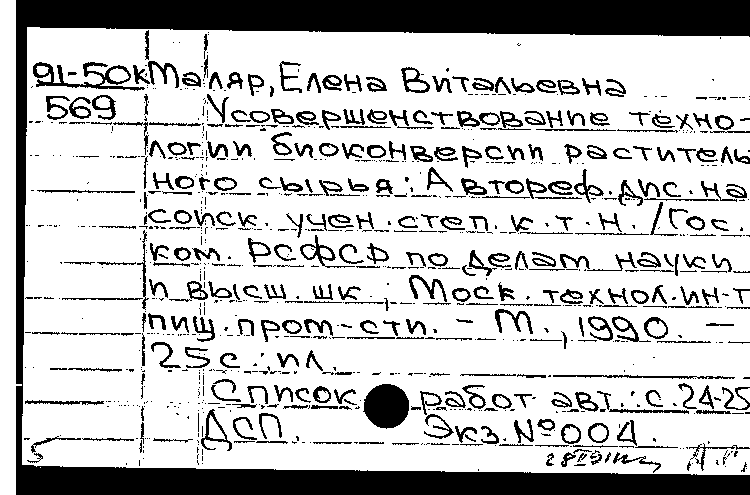 91-50к Маляр, Елена Витальевна
569 Усовершенствование техно-
логии биоконверсии раститель
ного сырья: Автореф. дис. на
соиск. учен. степ. к. т. н. /Гос.
ком. РСФСР по делам науки
и высш. шк ; Моск. технол. ин-т
пищ. пром-сти. – М., 1990. –
25с.: ил.
Список работ авт.: с. 24-25
ДСП. Экз. №004.
5 А.Г.